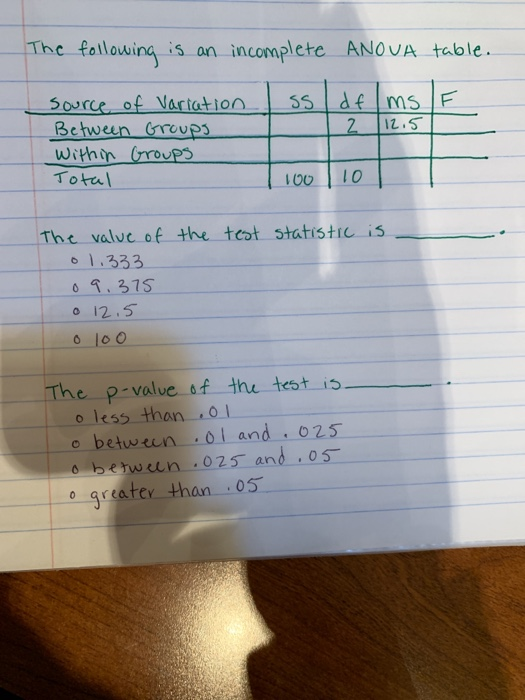 The following is an incomplete ANOVA table.
Source of Variation SS df ms F
Between Groups 2 12.5
Within Groups
Total 100 10
The value of the test statistic is ________.
○ 1.333
○ 9.375
○ 12.5
○ 100
The p-value of the test is ________.
○ less than .01
○ between .01 and .025
○ between .025 and .05
○ greater than .05